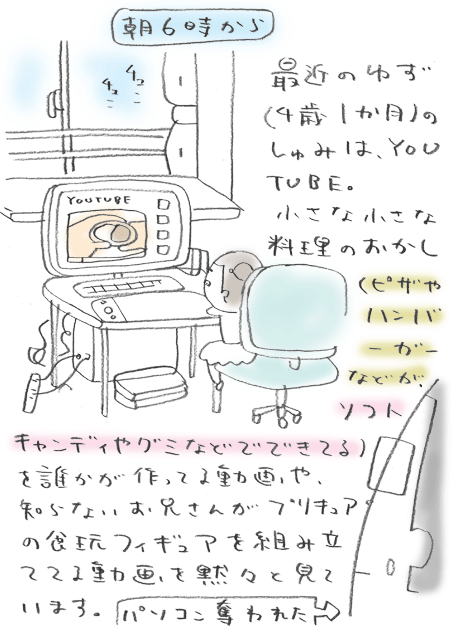 朝6時から
チュ
チュ
YOUTUBE
最近のゆず
(4歳1か月)の
しゅみは、YOU
TUBE。
小さな小さな
料理のおかし
(ピザや
ハンバ
ーガー
などが、
ソフト
キャンディやグミなどでできてる)
を誰かが作ってる動画や、
知らないお兄さんがプリキュア
の食玩フィギュアを組み立
ててる動画を黙々と見て
います。
パソコン奪われた